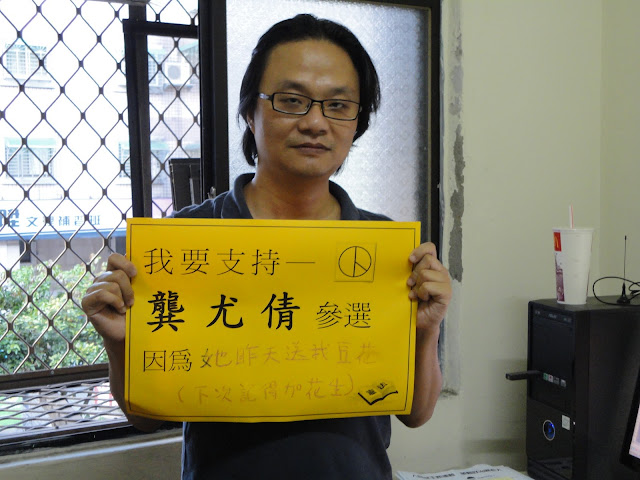 我要支持—
龔尤倩 參選
因為她昨天送我豆花
(下次記得加花生)
補習班